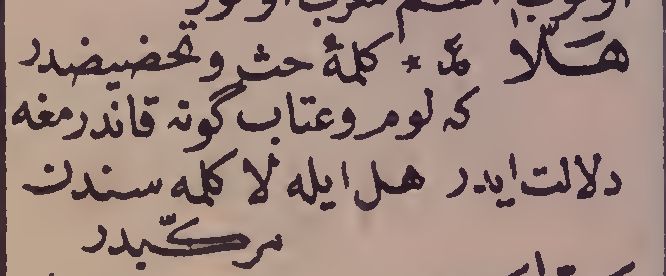 هَلَّا * كلمهٔ حث و تحضيضدر
كه لوم و عتاب گونه قاندرمغه
دلالت ايدر هل ايله لا كلمه سندن
مركّبدر